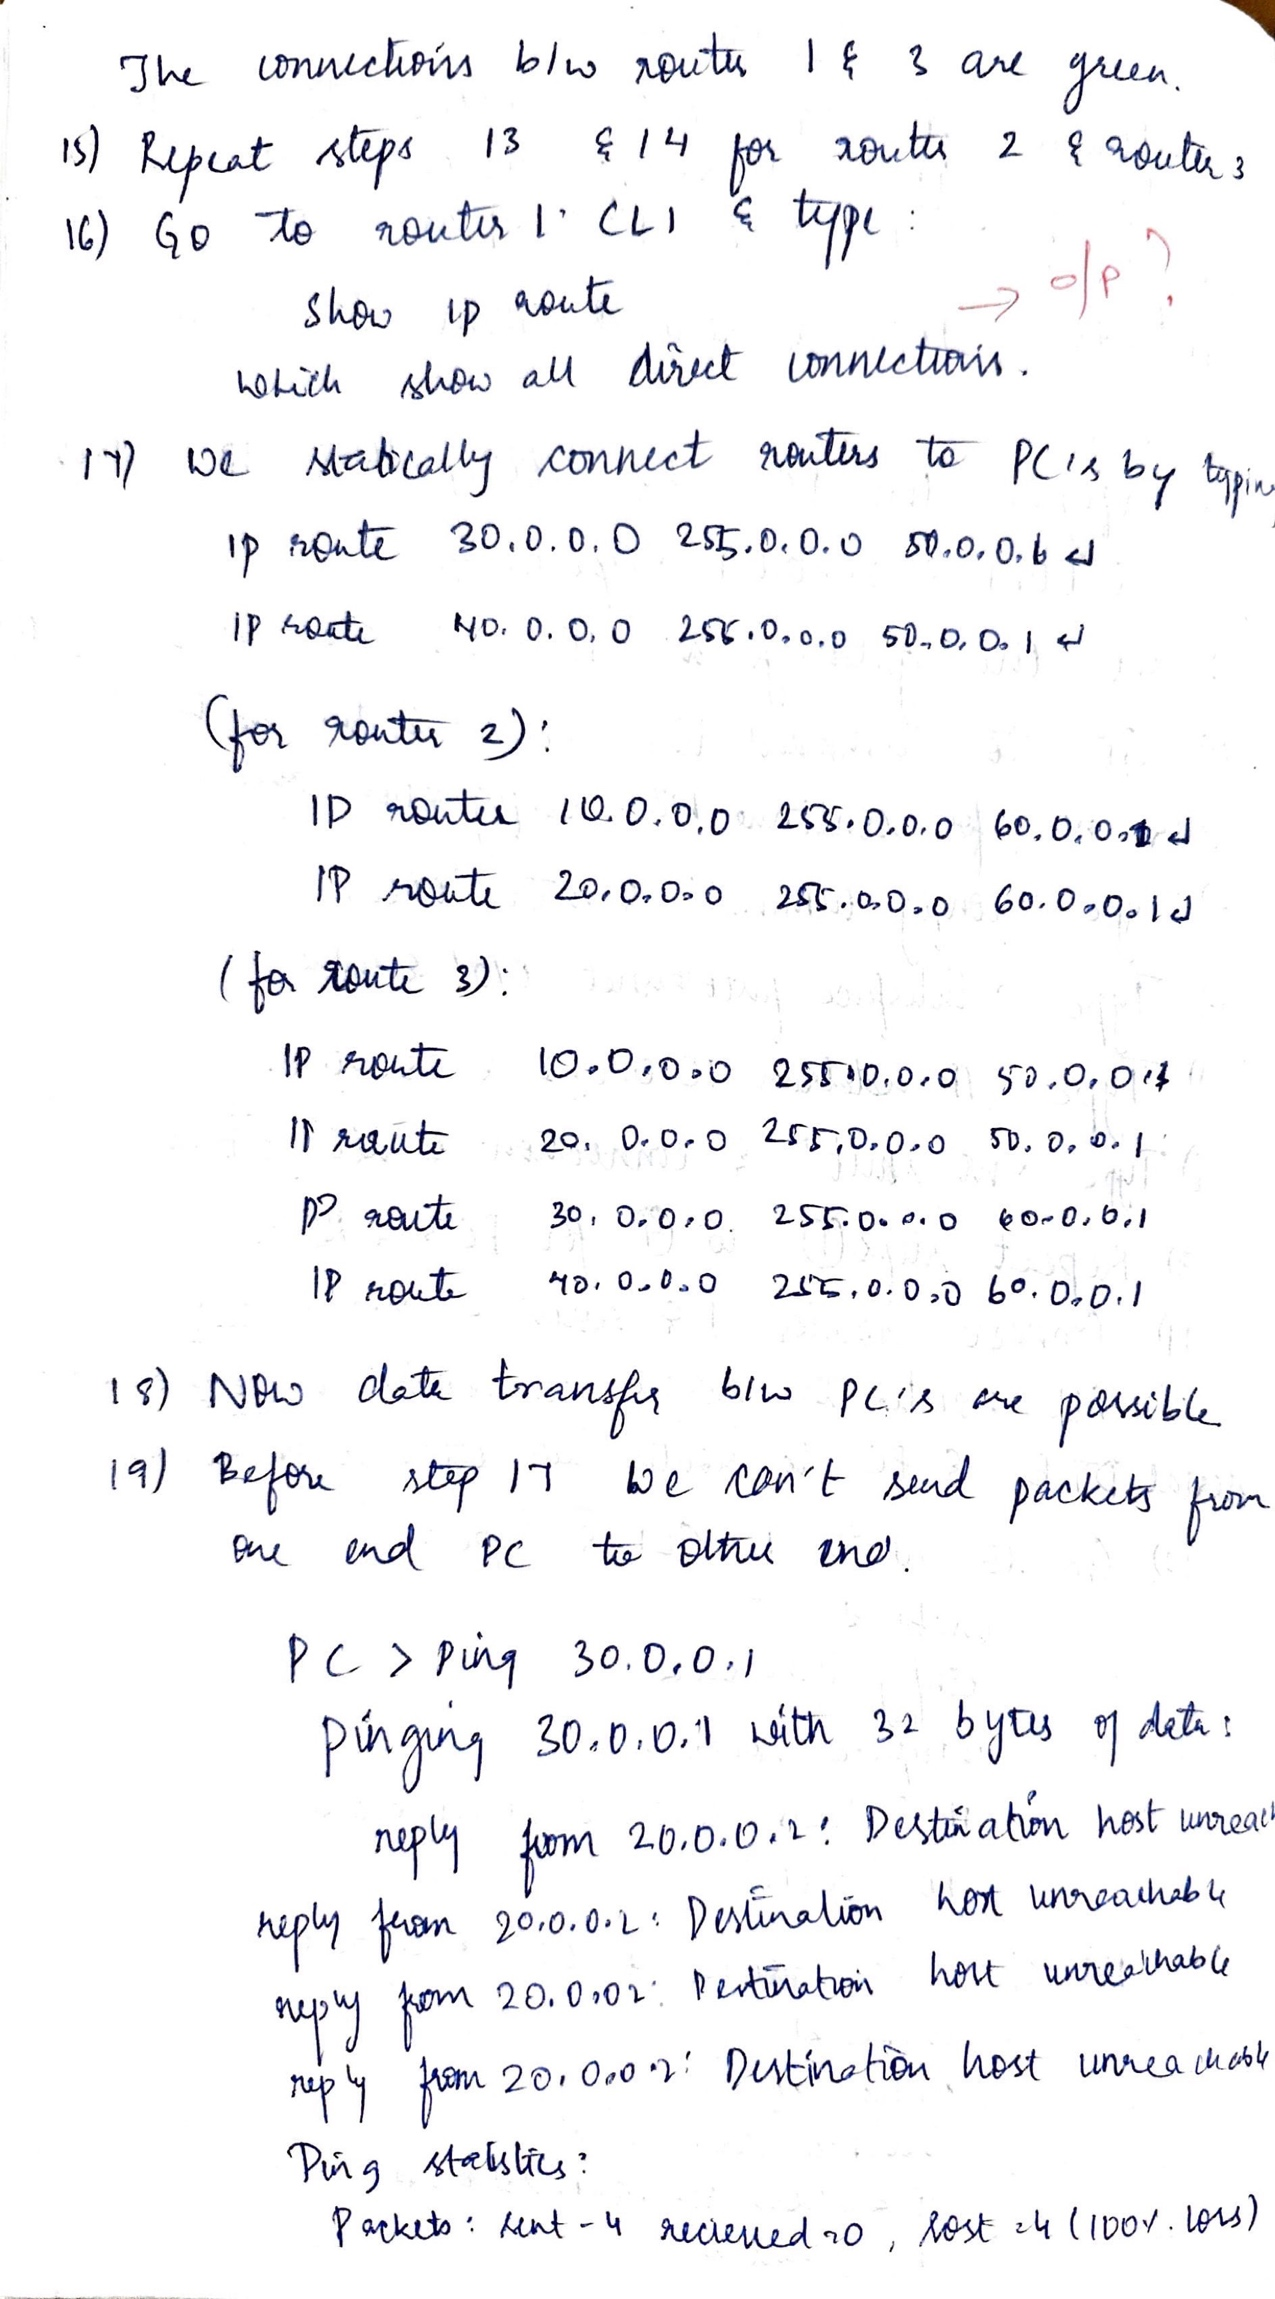 The connections b/w router 1 & 3 are green.
15) Repeat steps 13 & 14 for router 2 & router 3
16) Go to router 1 CLI & type :
→ o/p ?
show ip route
which show all direct connections.
17) We statically connect routers to PC's by typin
ip route 30.0.0.0 255.0.0.0 50.0.0.6 ↵
IP route 40.0.0.0 255.0.0.0 50.0.0.1 ↵
(for router 2):
IP router 10.0.0.0 255.0.0.0 60.0.0.1 ↵
IP route 20.0.0.0 255.0.0.0 60.0.0.1 ↵
(for route 3):
IP route 10.0.0.0 255.0.0.0 50.0.0.1
IP route 20.0.0.0 255.0.0.0 50.0.0.1
IP route 30.0.0.0 255.0.0.0 60.0.0.1
IP route 40.0.0.0 255.0.0.0 60.0.0.1
18) Now data transfer b/w PC's are possible
19) Before step 17 we can't send packets from
one end PC to other end.
PC > Ping 30.0.0.1
Pinging 30.0.0.1 with 32 bytes of data:
reply from 20.0.0.2: Destination host unreach
reply from 20.0.0.2: Destination host unreachable
reply from 20.0.02: Destination host unreachable
reply from 20.0.0.2: Destination host unreachable
Ping statistics:
Packets: sent - 4 recieved = 0, lost = 4 (100% loss)